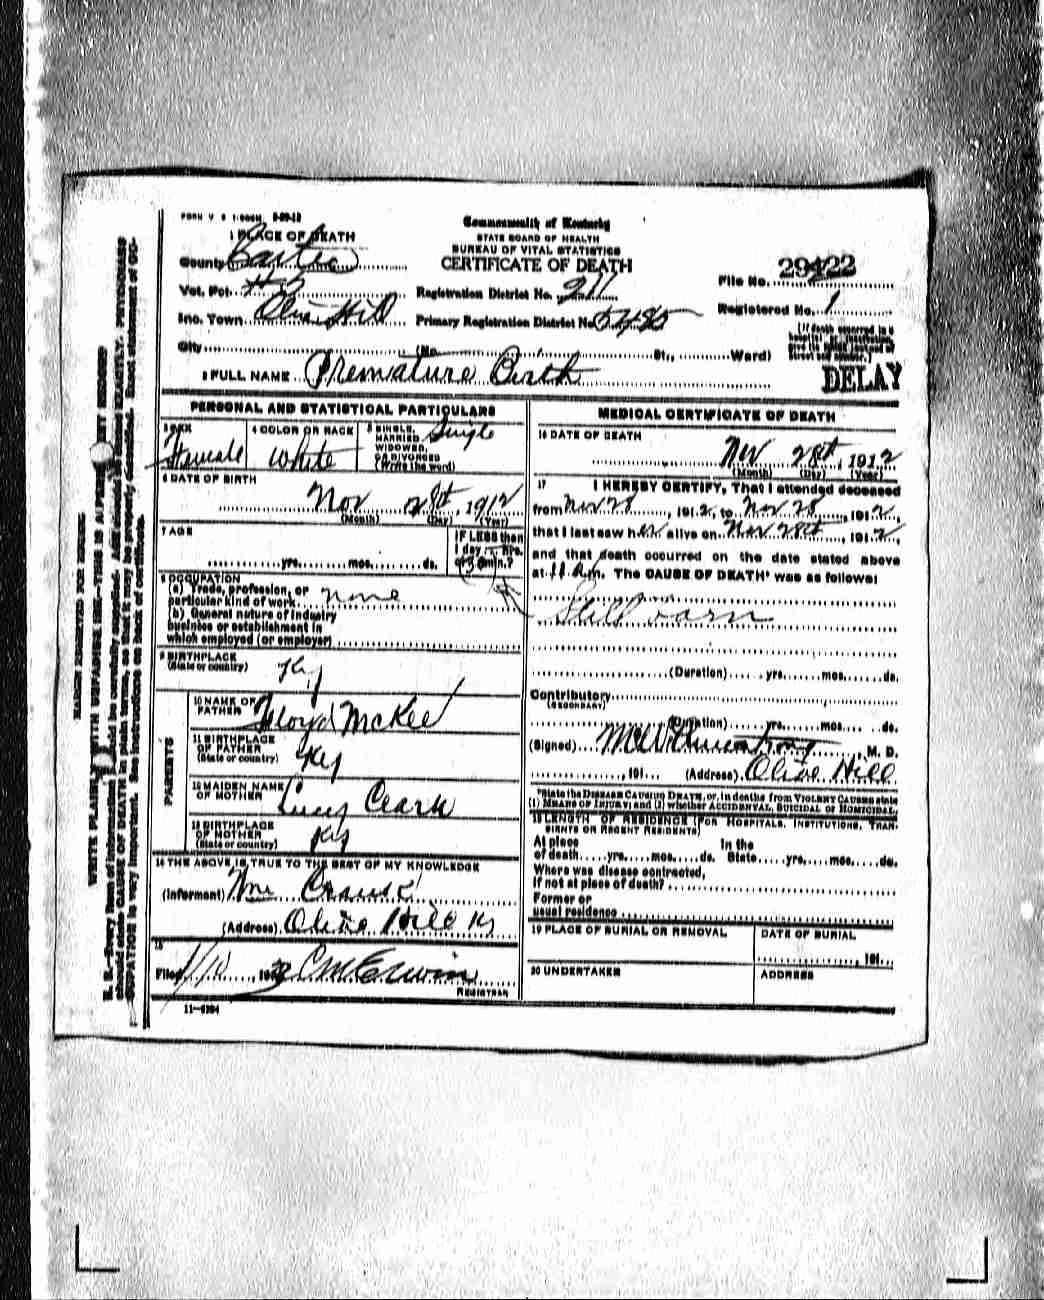 FORM V S 1-
Commonwealth of Kentucky
STATE BOARD OF HEALTH
BUREAU OF VITAL STATISTICS
CERTIFICATE OF DEATH
1 PLACE OF DEATH
County Carter
Vot. Pct. #5
Registration District No. 211
File No. 29422
Inc. Town Olive Hill
Primary Registration District No. 5485
Registered No. 1
City (No. St., Ward)
[If death occurred in a
Street and number.]
DELAY
2 FULL NAME Premature Birth
PERSONAL AND STATISTICAL PARTICULARS
3 SEX Female
4 COLOR OR RACE White
5 SINGLE, MARRIED, WIDOWED, OR DIVORCED (Write the word) Single
6 DATE OF BIRTH
Nov 28th, 1912
(Month) (Day) (Year)
7 AGE
yrs. mos. ds.
IF LESS than
1 day hrs.
or min.?
8 OCCUPATION
(a) Trade, profession, or
particular kind of work none
(b) General nature of industry
business or establishment in
which employed (or employer)
9 BIRTHPLACE
(State or country) Ky
PARENTS
10 NAME OF
FATHER Floyd McKee
11 BIRTHPLACE
OF FATHER
(State or country) Ky
12 MAIDEN NAME
OF MOTHER Lucy Clark
13 BIRTHPLACE
OF MOTHER
(State or country) Ky
14 THE ABOVE IS TRUE TO THE BEST OF MY KNOWLEDGE
(Informant) Wm
(Address) Olive Hill Ky
15
Filed 1/10, 191 C M Erwin
REGISTRAR
11-
MEDICAL CERTIFICATE OF DEATH
16 DATE OF DEATH
Nov 28th, 1912
(Month) (Day) (Year)
17 I HEREBY CERTIFY, That I attended deceased
from Nov 28, 1912, to Nov 28, 1912,
that I last saw her alive on Nov 28th, 1912,
and that death occurred on the date stated above
at 11 A m. The CAUSE OF DEATH* was as follows:
Still born
(Duration) yrs. mos. ds.
Contributory
(SECONDARY)
(Duration) yrs. mos. ds.
(Signed) , M. D.
, 191 (Address) Olive Hill
*State the DISEASE CAUSING DEATH, or, in deaths from VIOLENT CAUSES state
(1) MEANS OF INJURY; and (2) whether ACCIDENTAL, SUICIDAL or HOMICIDAL.
18 LENGTH OF RESIDENCE (FOR HOSPITALS, INSTITUTIONS, TRAN-
SIENTS OR RECENT RESIDENTS)
At place In the
of death yrs. mos. ds. State yrs. mos. ds.
Where was disease contracted,
if not at place of death?
Former or
usual residence
19 PLACE OF BURIAL OR REMOVAL
DATE OF BURIAL
, 191
20 UNDERTAKER
ADDRESS
MARGIN RESERVED FOR BINDING